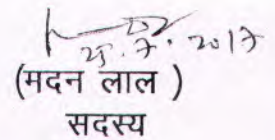 25.7.2017
(मदन लाल )
सदस्य